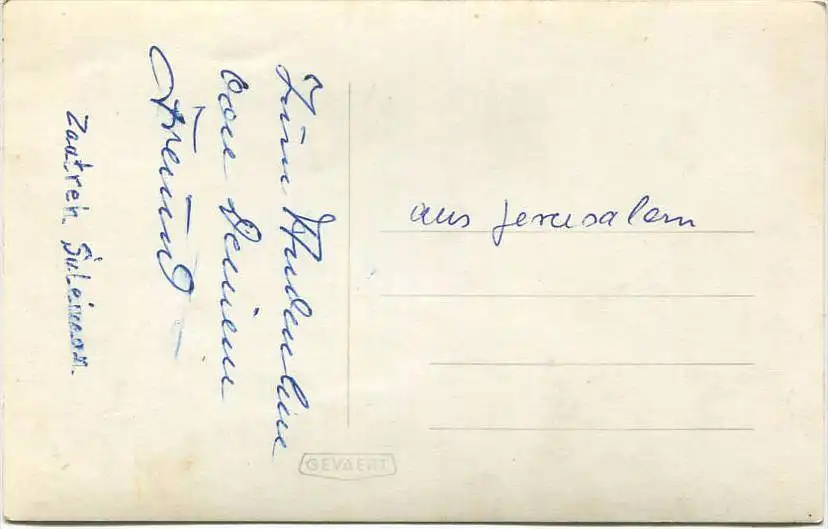 Zum Andenken
von Deinem
Freund
Zaatreh Suleiman.
aus Jerusalem
GEVAERT